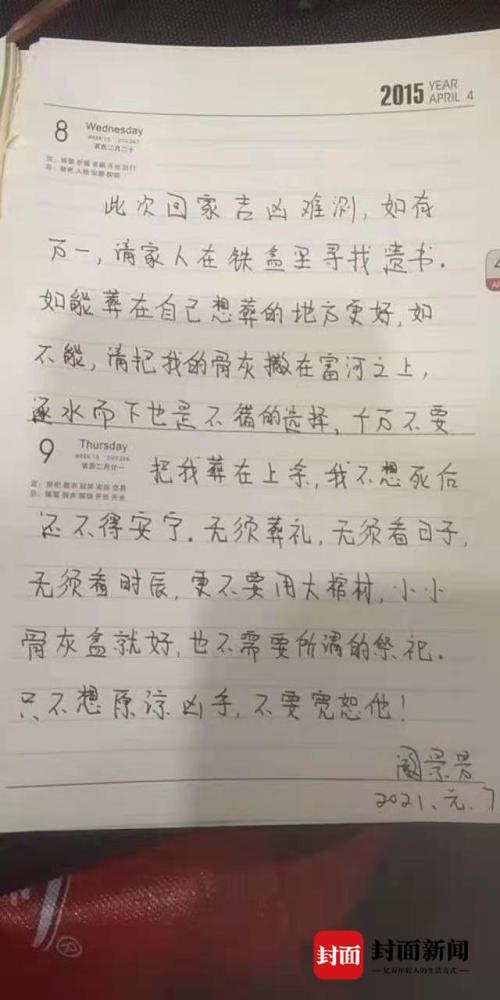 2015 YEAR
APRIL 4
8 Wednesday
农历二月二十
此次回家吉凶难测，如有
万一，请家人在铁盒里寻找遗书.
如能葬在自己想葬的地方更好，如
不能，请把我的骨灰撒在富河之上，
逐水而下也是不错的选择，千万不要
9 Thursday
农历二月廿一
把我葬在上余，我不想死后
还不得安宁.无须葬礼，无须看日子，
无须看时辰，更不要用大棺材，小小
骨灰盒就好，也不需要所谓的祭祀.
只不想原谅凶手，不要宽恕他！
阚景芳
2021.元.7
封面 封面新闻
亿万年轻人的生活方式